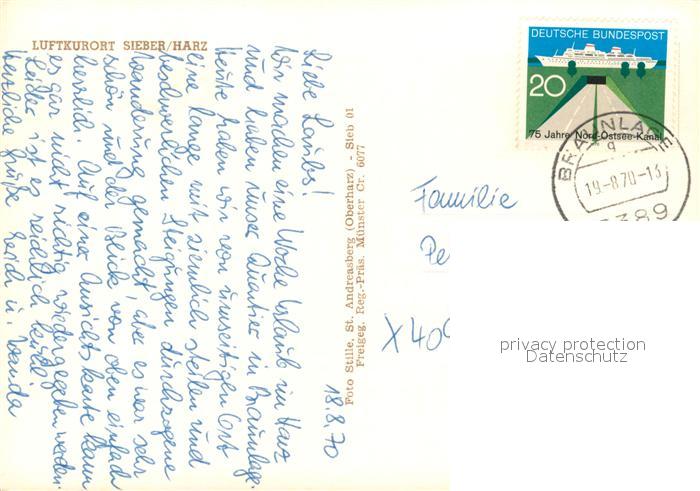 LUFTKURORT SIEBER/HARZ
18.8.70
Liebe
Wir machen eine Woche Urlaub im Harz
und haben unser Quartier in Braunlage.
Heute haben wir von unseitigen Ort
eine lange mit ziemlich steilen und
beschwerlichen Steigungen durchzogene
Wanderung gemacht, aber es war sehr
schön und der Blick von oben einfach
herrlich. Auf einer Ansichtskarte kann
es gar nicht richtig wiedergegeben werden.
Leider ist es reichlich kühl.
Herzliche Grüße
Foto Stille, St. Andreasberg (Oberharz) - Sieb 01
Freigeg. Reg.-Präs. Münster Cr. 6077
DEUTSCHE BUNDESPOST
20
75 Jahre Nord-Ostsee-Kanal
BRAUNLAGE
19-8.70-13
3389
Familie
Pe
X 409
privacy protection
Datenschutz